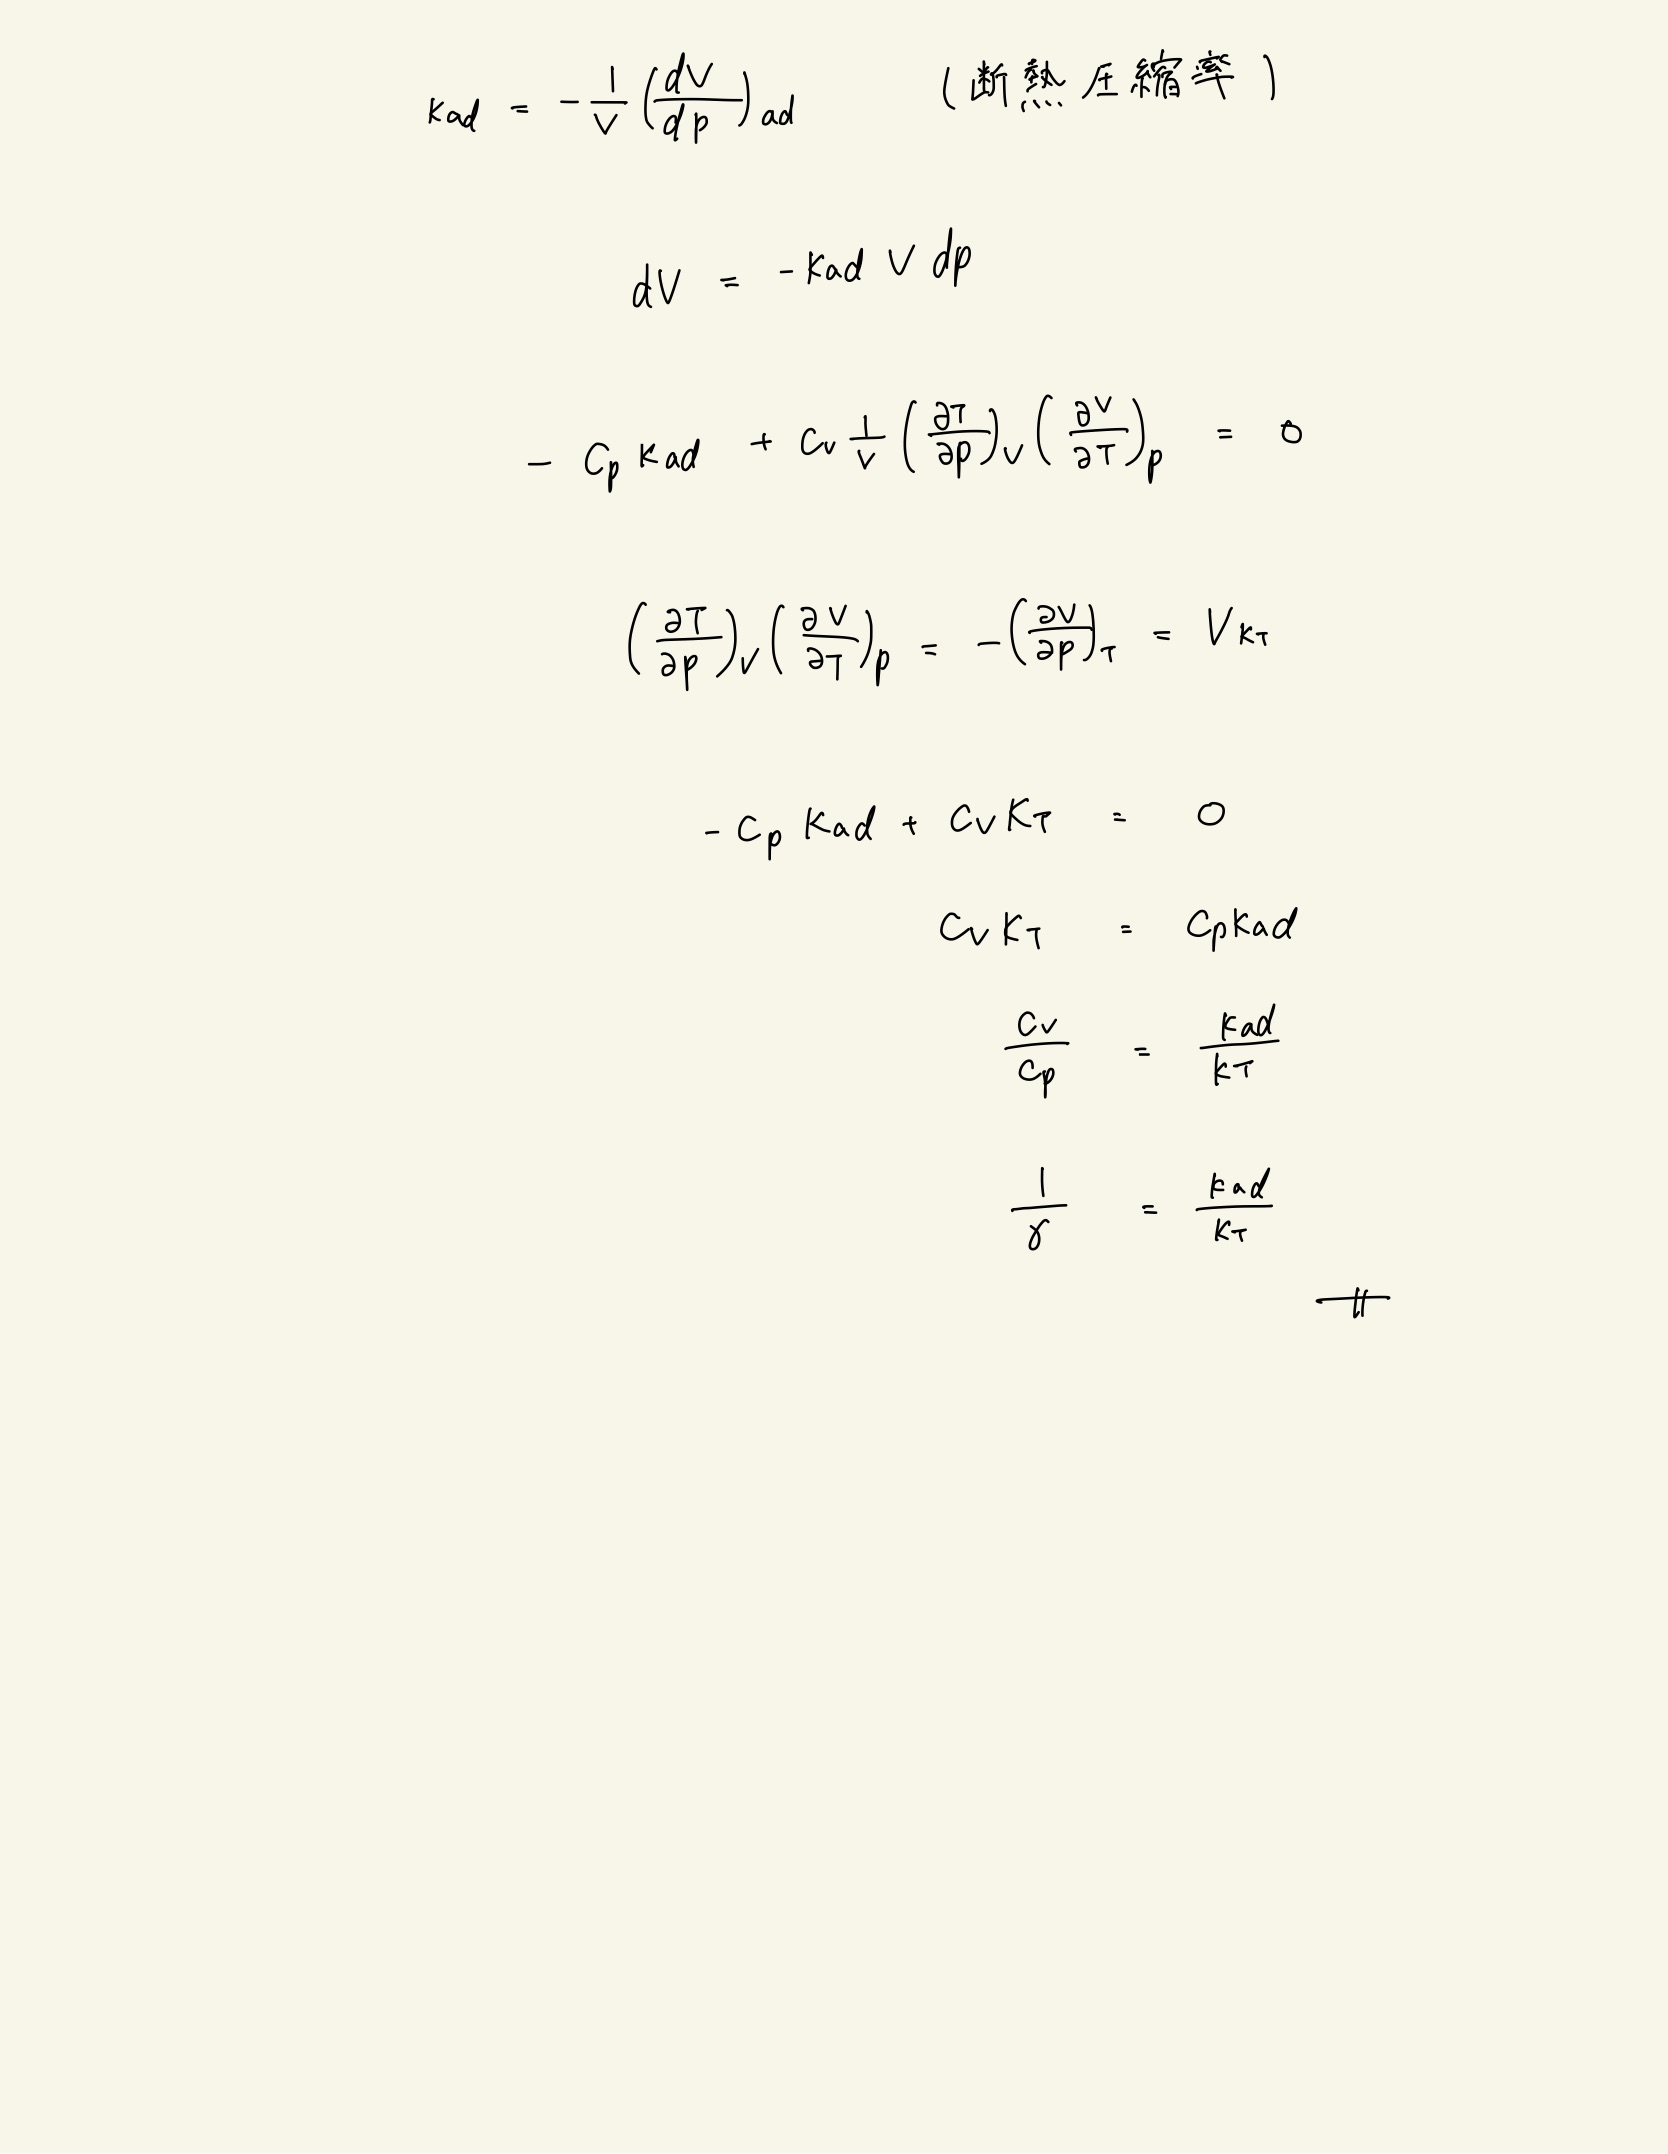 κad = - 1/V (dV/dp)ad (断熱圧縮率)
dV = -κad V dp
- Cp κad + Cv 1/V (∂T/∂p)V (∂V/∂T)p = 0
(∂T/∂p)V (∂V/∂T)p = -(∂V/∂p)T = VκT
- Cp κad + CV κT = 0
CV κT = Cp κad
Cv/Cp = κad/κT
1/γ = κad/κT